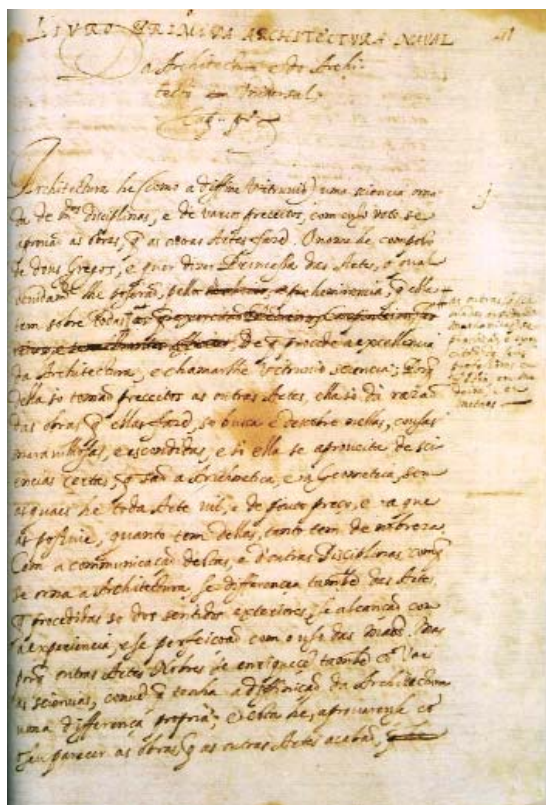 LIVRO PRIMº DA ARCHITECTVRA NAVAL
Da Architectura e do Archi-
tecto Universal.
Cap.
Architectura he (como a diffine Vitruvio) uma sciencia orna
da de mtas disciplinas, e de varios preceitos, com cujo voto se
aprovaõ as obras, q̃ as outras Artes fazẽ. O nome he composto
de dous Gregos, e quer dizer Princessa das Artes, o qual
lhe poseraõ, pella preheminencia, q̃ ella
tem sobre todas
de q̃ procede a excellencia
da Architectura, e chamarlhe Vitruvio sciencia;
della so tomaõ preceitos as outras Artes, ella so dá razaõ
das obras q̃ ellas fazẽ, so busca e descobre nellas, cousas
maravilhosas, e escondidas, e si ella se aproveita de sci-
encias certas, q̃ saõ a Arithmetica, e a Geometria, sem
as quaes he toda Arte vil, e de pouco preço, e a que
as possuie, quanto tem dellas, tanto tem de nobreza.
Com a communicaçaõ destas, e d'outras Disciplinas
se orna a Architectura, se differencea tambẽ das Artes,
q̃ procedidas so dos sentidos exteriores, se alcançaõ com
a experiencia, e se perfeiçoaõ com o uso das maõs. Mas
porq̃ outras Artes Nobres se enriqueçẽ tambẽ cõ varias
sciencias, convẽ q̃ tenha a diffiniçaõ da Architectura
uma differença propria; e esta he, aprovarense cõ
seu parecer as obras q̃ as outras Artes acabaõ,
as outras